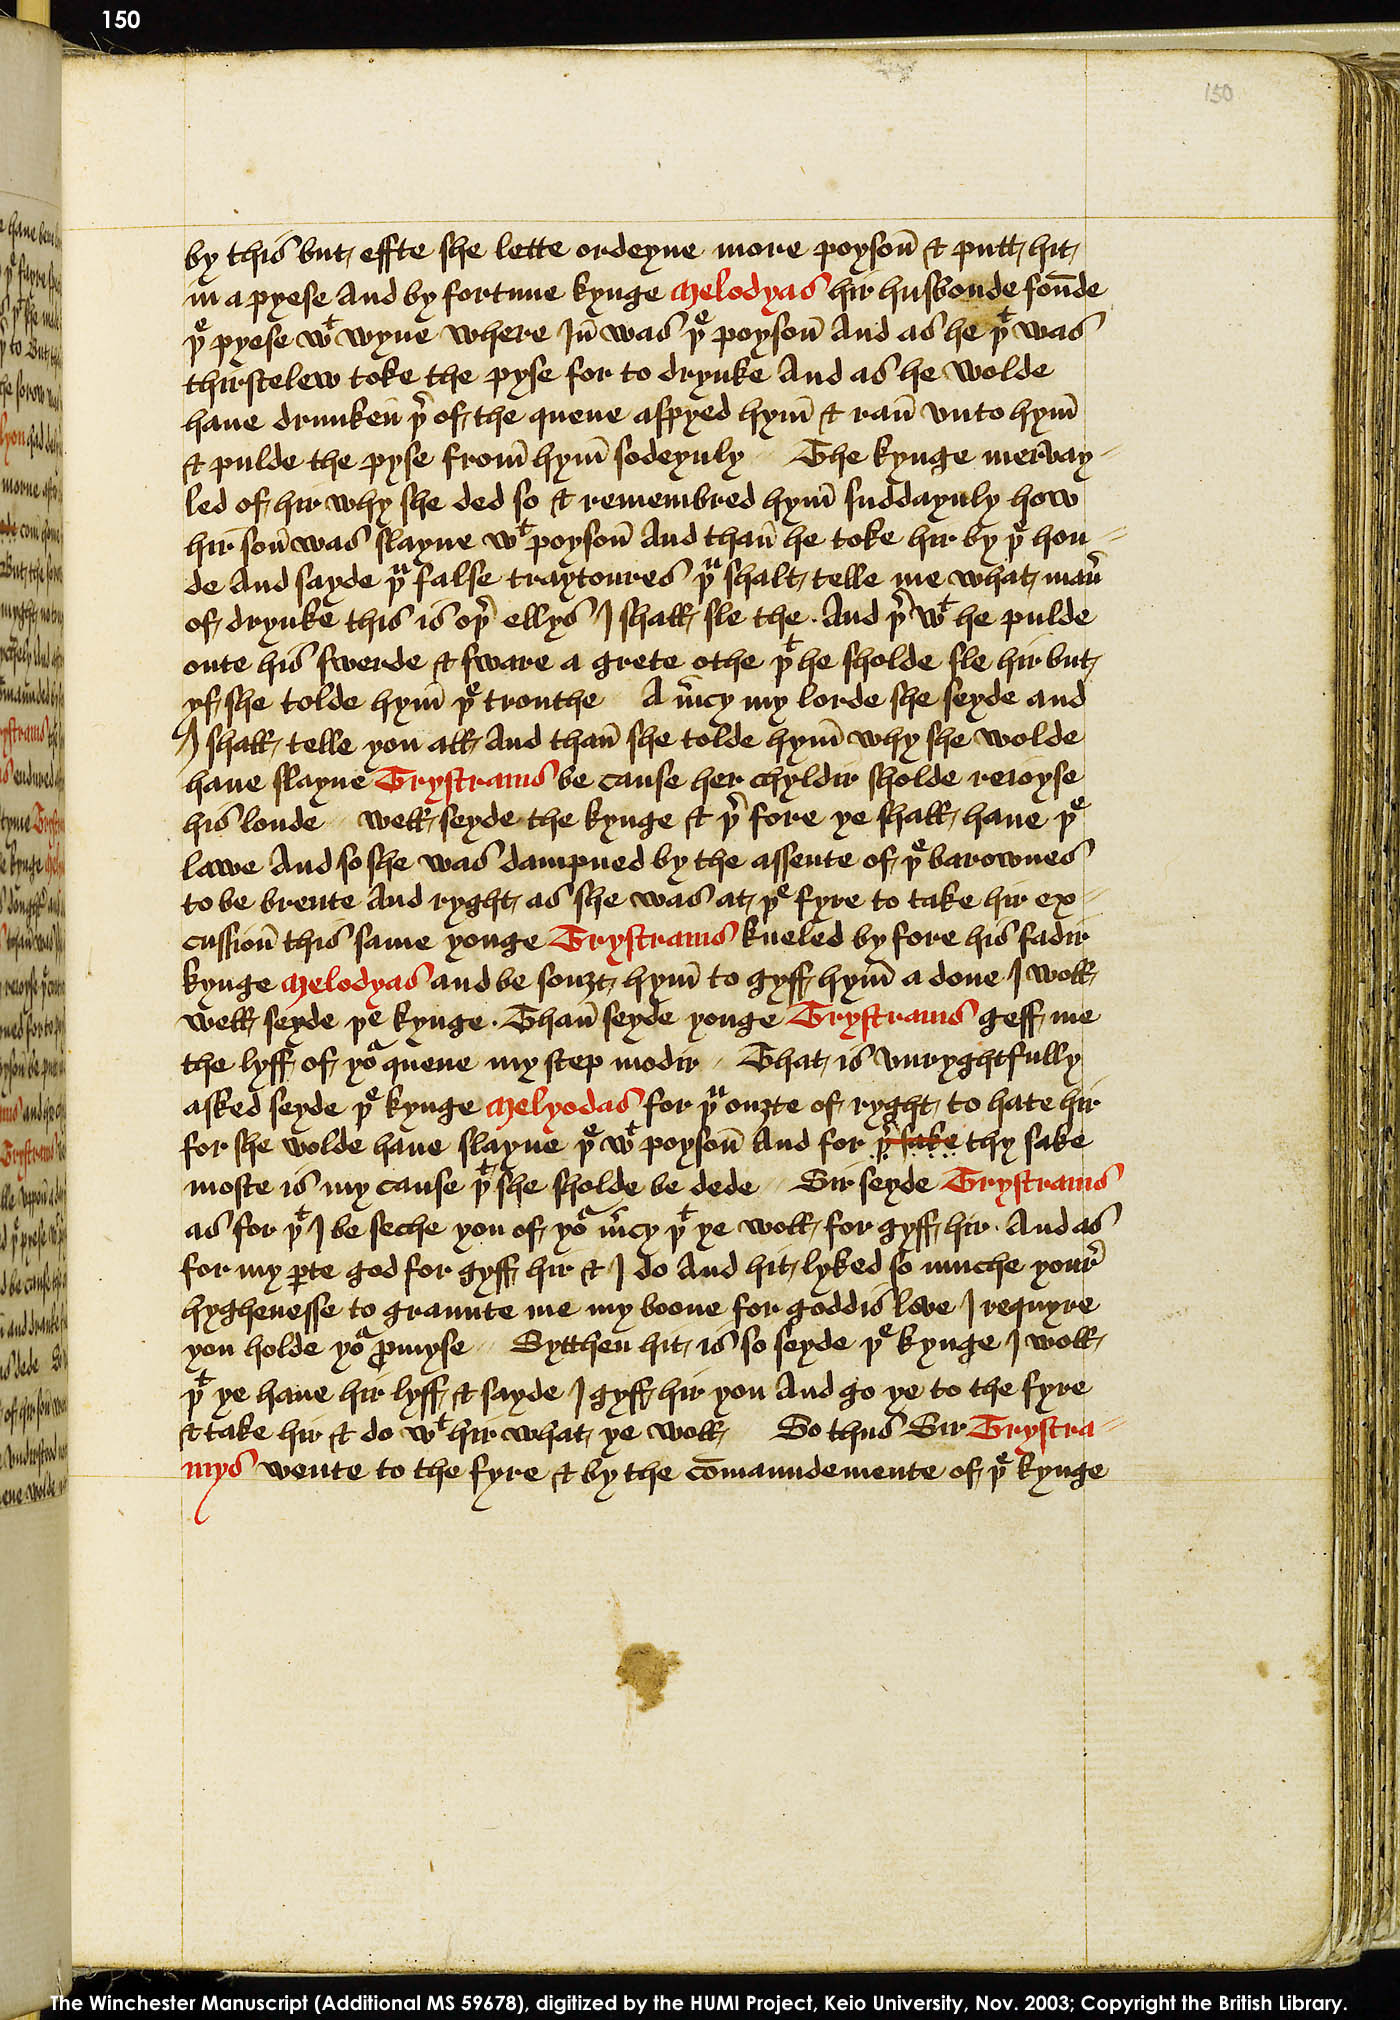 150
150
by this but effte she lette ordeyne more poyson̄ & putt hit
in a pyese And by fortune kynge Melodyas hir husbonde foūde
þᵉ pyese wᵗ wyne where In̄ was þᵉ poyson̄ And as he þᵗ was
thirstelew toke the pyse for to drynke And as he wolde
haue drunken̄ þ̉ of the quene aspyed hym̄ & ran̄ vnto hym̄
& pulde the pyse from̄ hym̄ sodeynly The kynge mer̉vay-
led of hir why she ded so & remembred hym̄ suddaynly how
hir son̄ was slayne wᵗ poyson̄ And than̄ he toke hir by þᵉ hon-
de And sayde þᵘ false traytoures þᵘ shalt telle me what man̉
of drynke this is oþ̉ ellys I shall sle the. And þ̉ wᵗ he pulde
oute his swerde & sware a grete othe þᵗ he sholde sle hir but
yf she tolde hym̄ þᵉ trouthe A m̉cy my lorde she seyde and
I shall telle you all And than̄ she tolde hym̄ why she wolde
haue slayne Trystrams be cause her chyldir sholde reioyse
his londe well seyde the kynge & þ̉ fore ye shall haue þᵉ
lawe And so she was dampned by the assente of þᵉ barownes
to be brente And ryght as she was at þᵉ fyre to take hir ex-
cussion̄ this same yonge Trystrams kneled by fore his fadir
kynge Melodyas and be souȝt hym̄ to gyff hym̄ a done I woll
well seyde þᵉ kynge. Than̄ seyde yonge Trystrams geff me
the lyff of yoᵃ quene my step modir That is vnryghtfully
asked seyde þᵉ kynge Melyodas for þᵘ ouȝte of ryght to hate hir
for she wolde haue slayne þᵉ wᵗ poyson̄ And for þ̉ sake thy sake
moste is my cause þᵗ she sholde be dede Sir seyde Trystrams
as for þᵗ I be seche you of yoᵃ m̉cy þᵗ ye woll for gyff hir. And as
for my ꝑte god for gyff hir & I do And hit lyked so muche your̉
hyghenesse to graunte me my boone for goddis love I requyre
you holde yoᵃ ꝓmyse Sytthen hit is so seyde þᵉ kynge I woll
þᵗ ye haue hir lyff & sayde I gyff hir you And go ye to the fyre
& take hir & do wᵗ hir what ye woll So thus Sir Trystra-
mys wente to the fyre & by the cōmaundemente of þᵉ kynge
The Winchester Manuscript (Additional MS 59678), digitized by the HUMI Project, Keio University, Nov. 2003; Copyright the British Library.